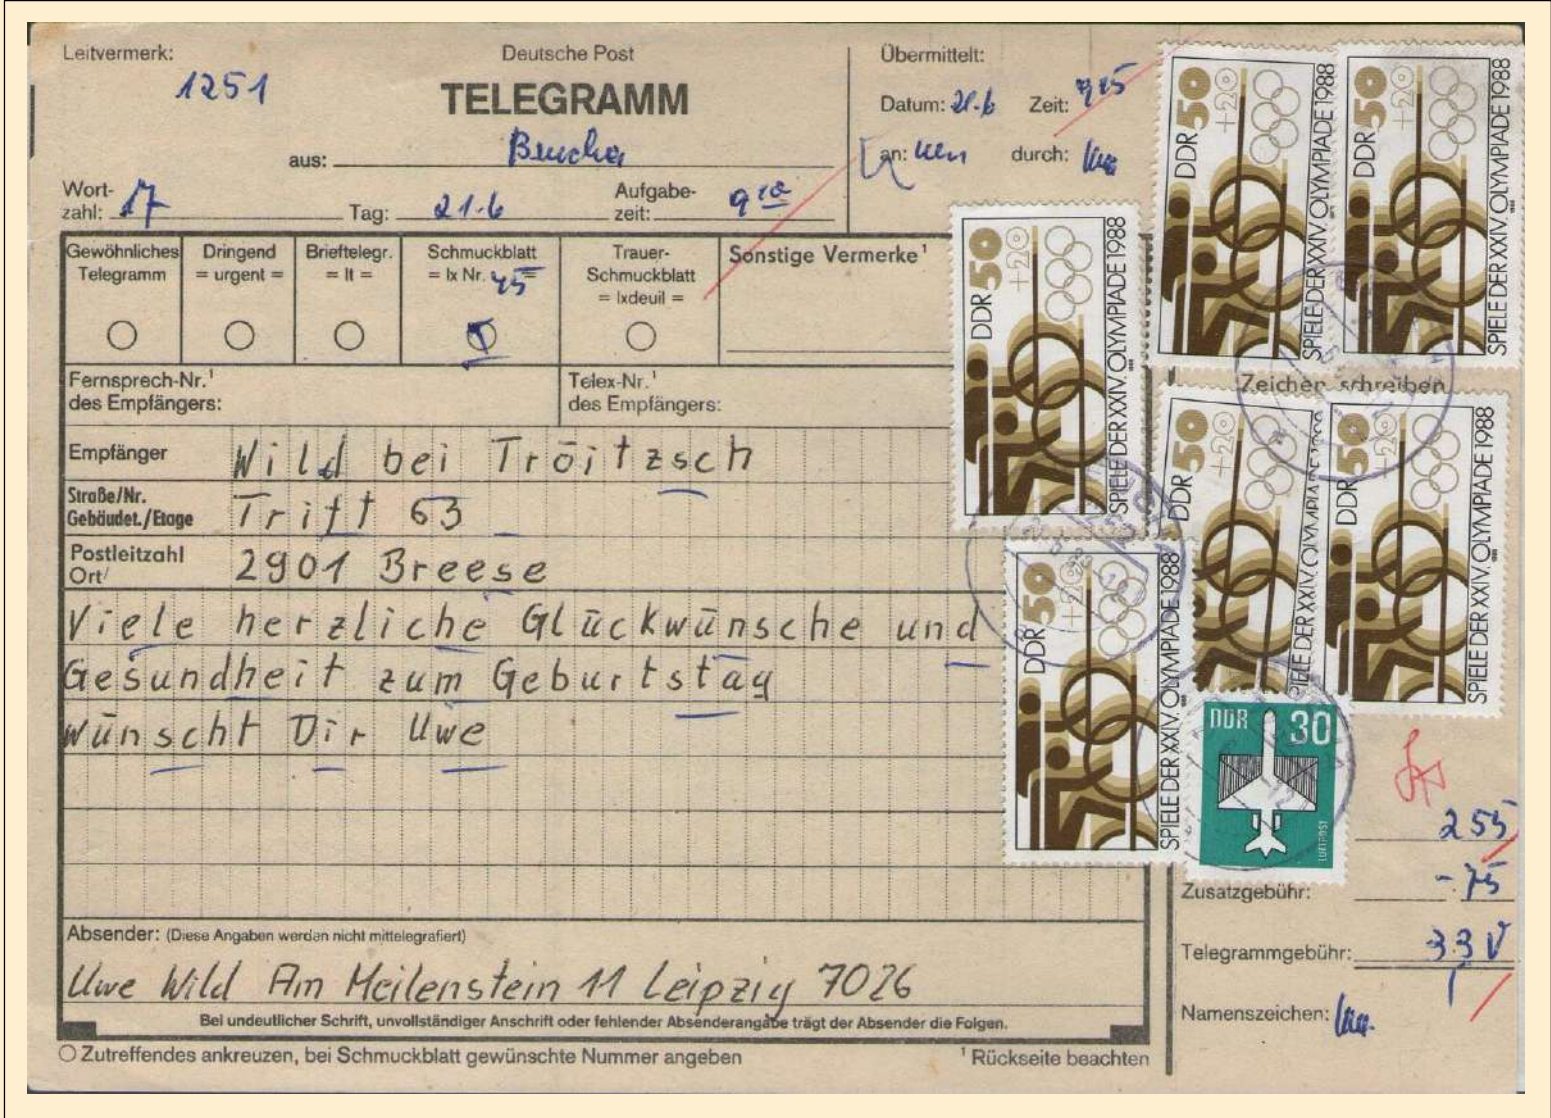 Leitvermerk:
1251
Deutsche Post
TELEGRAMM
aus: Brucha
Wort-
zahl: 17
Tag: 21.6
Aufgabe-
zeit: 9
Übermittelt:
Datum: 21.6 Zeit:
an: durch:
Gewöhnliches
Telegramm
Dringend
= urgent =
Brieftelegr.
= lt =
Schmuckblatt
= lx Nr. 45
Trauer-
Schmuckblatt
= lxdeuil =
Sonstige Vermerke¹
Fernsprech-Nr.¹
des Empfängers:
Telex-Nr.¹
des Empfängers:
Zeichen schreiben
Empfänger Wild bei Tröitzsch
Straße/Nr.
Gebäudet./Etage Trift 63
Postleitzahl
Ort/ 2901 Breese
Viele herzliche Glückwünsche und
Gesundheit zum Geburtstag
wünscht Dir Uwe
Absender: (Diese Angaben werden nicht mittelegrafiert)
Uwe Wild Am Meilenstein 11 Leipzig 7026
Bei undeutlicher Schrift, unvollständiger Anschrift oder fehlender Absenderangabe trägt der Absender die Folgen.
Zutreffendes ankreuzen, bei Schmuckblatt gewünschte Nummer angeben
¹ Rückseite beachten
DDR 50 +20 SPIELE DER XXIV. OLYMPIADE 1988
DDR 50 +20 SPIELE DER XXIV. OLYMPIADE 1988
DDR 50 +20 SPIELE DER XXIV. OLYMPIADE 1988
DDR 50 +20 SPIELE DER XXIV. OLYMPIADE 1988
DDR 50 +20 SPIELE DER XXIV. OLYMPIADE 1988
DDR 50 +20 SPIELE DER XXIV. OLYMPIADE 1988
DDR 30 LUFTPOST
255
Zusatzgebühr: -75
Telegrammgebühr: 330
Namenszeichen: